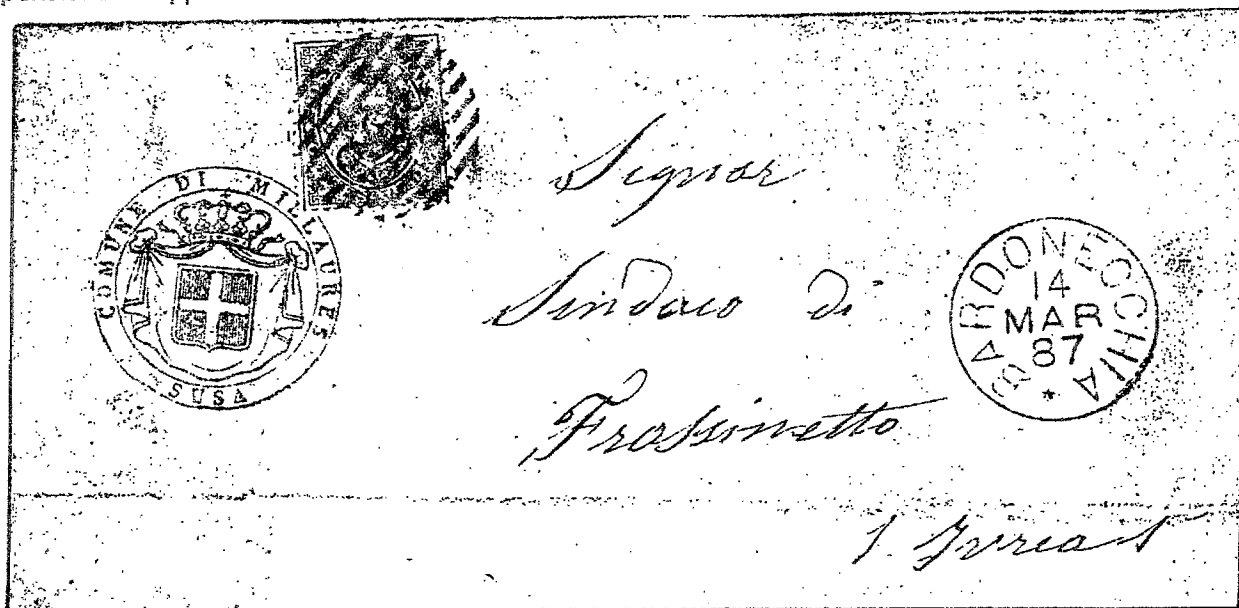 COMUNE DI MILLAURES
SUSA
Signor
Sindaco di
Frassinetto
BARDONECCHIA
14
MAR
87
Ivrea